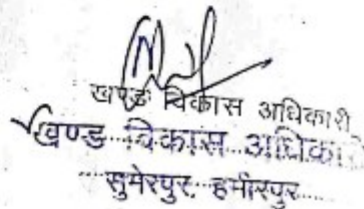 खण्ड विकास अधिकारी
खण्ड विकास अधिका
सुमेरपुर हमीरपुर